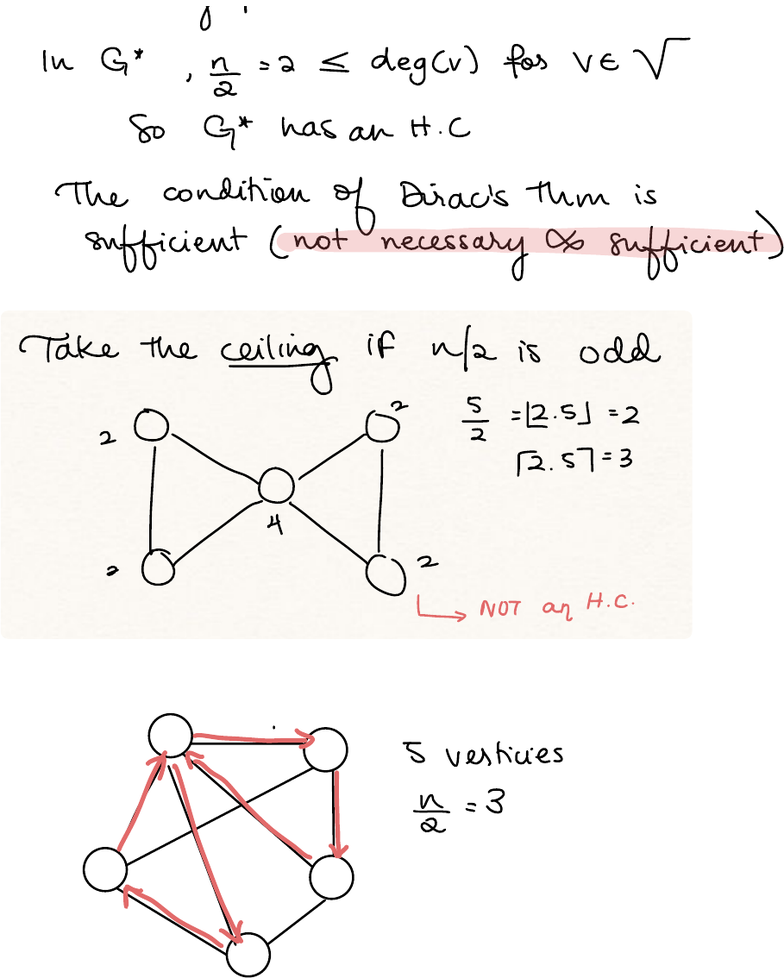 In G* , n/2 = 2 ≤ deg(v) for v ∈ V
So G* has an H.C
The condition of Dirac's Thm is
sufficient (not necessary & sufficient)
Take the ceiling if n/2 is odd
5/2 = ⌊2.5⌋ = 2
⌈2.5⌉ = 3
2
2
4
2
2
NOT an H.C.
5 verticies
n/2 = 3